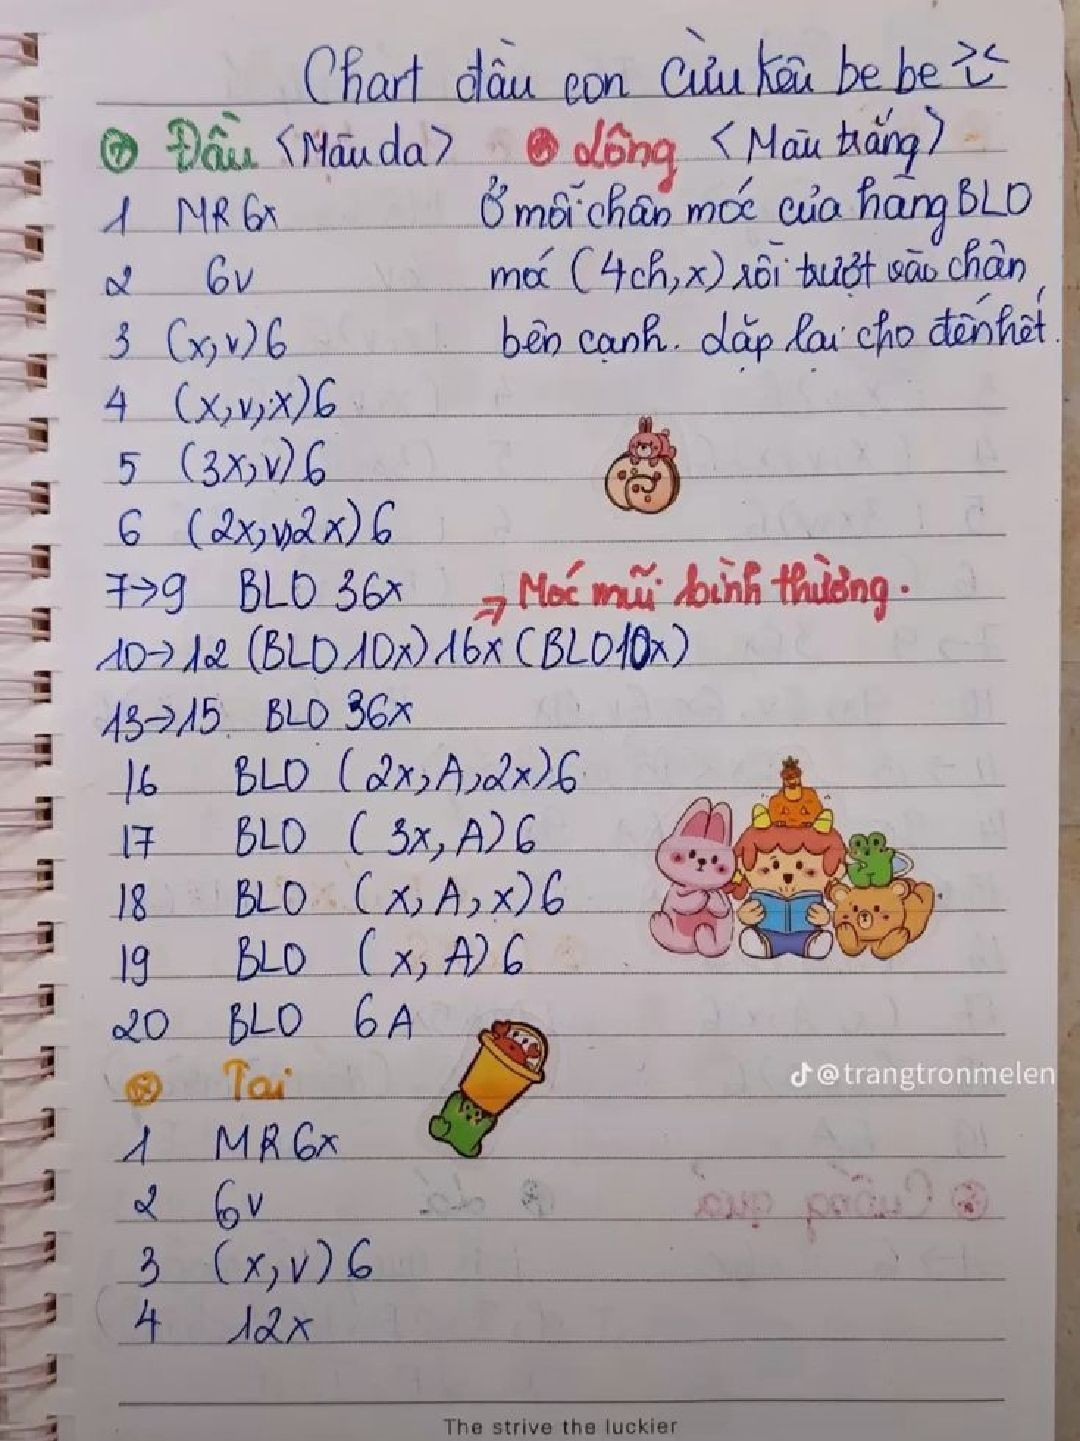 Chart đầu con Cừu kêu be be
Đầu <Màu da>
1 MR 6x
2 6v
3 (x,v)6
4 (x,v,x)6
5 (3x,v)6
6 (2x,v,2x)6
7→9 BLO 36x
10→12 (BLO 10x) 16x (BLO 10x)
⇒ Móc mũi bình thường.
13→15 BLO 36x
16 BLO (2x,A,2x)6
17 BLO (3x,A)6
18 BLO (x,A,x)6
19 BLO (x,A)6
20 BLO 6A
Lông <Màu trắng>
Ở mỗi chân móc của hàng BLO
móc (4ch,x) rồi trượt vào chân
bên cạnh. Lặp lại cho đến hết.
Tai
1 MR 6x
2 6v
3 (x,v)6
4 12x
@trangtronmelen
The strive the luckier